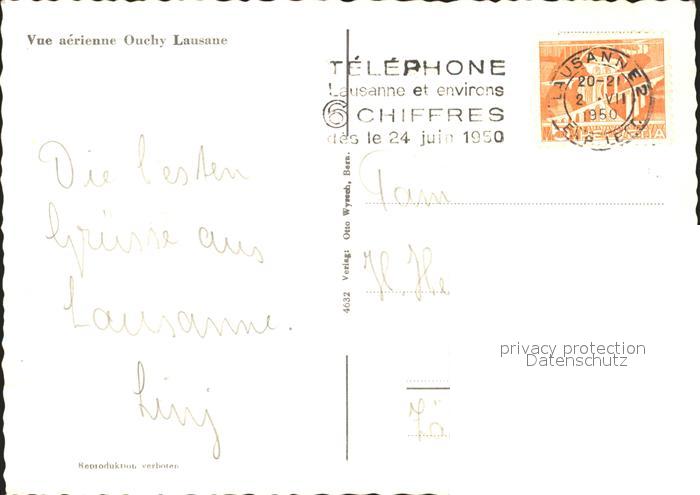 Vue aérienne Ouchy Lausane
TÉLÉPHONE
Lausanne et environs
6 CHIFFRES
dès le 24 juin 1950
LAUSANNE 2
20-21
2. VII
1950
HELVETIA
Die besten
Grüsse aus
Lausanne.
4632 Verlag: Otto Wyrsch, Bern.
Fam
H. He
privacy protection
Datenschutz
Zü
Reproduktion verboten